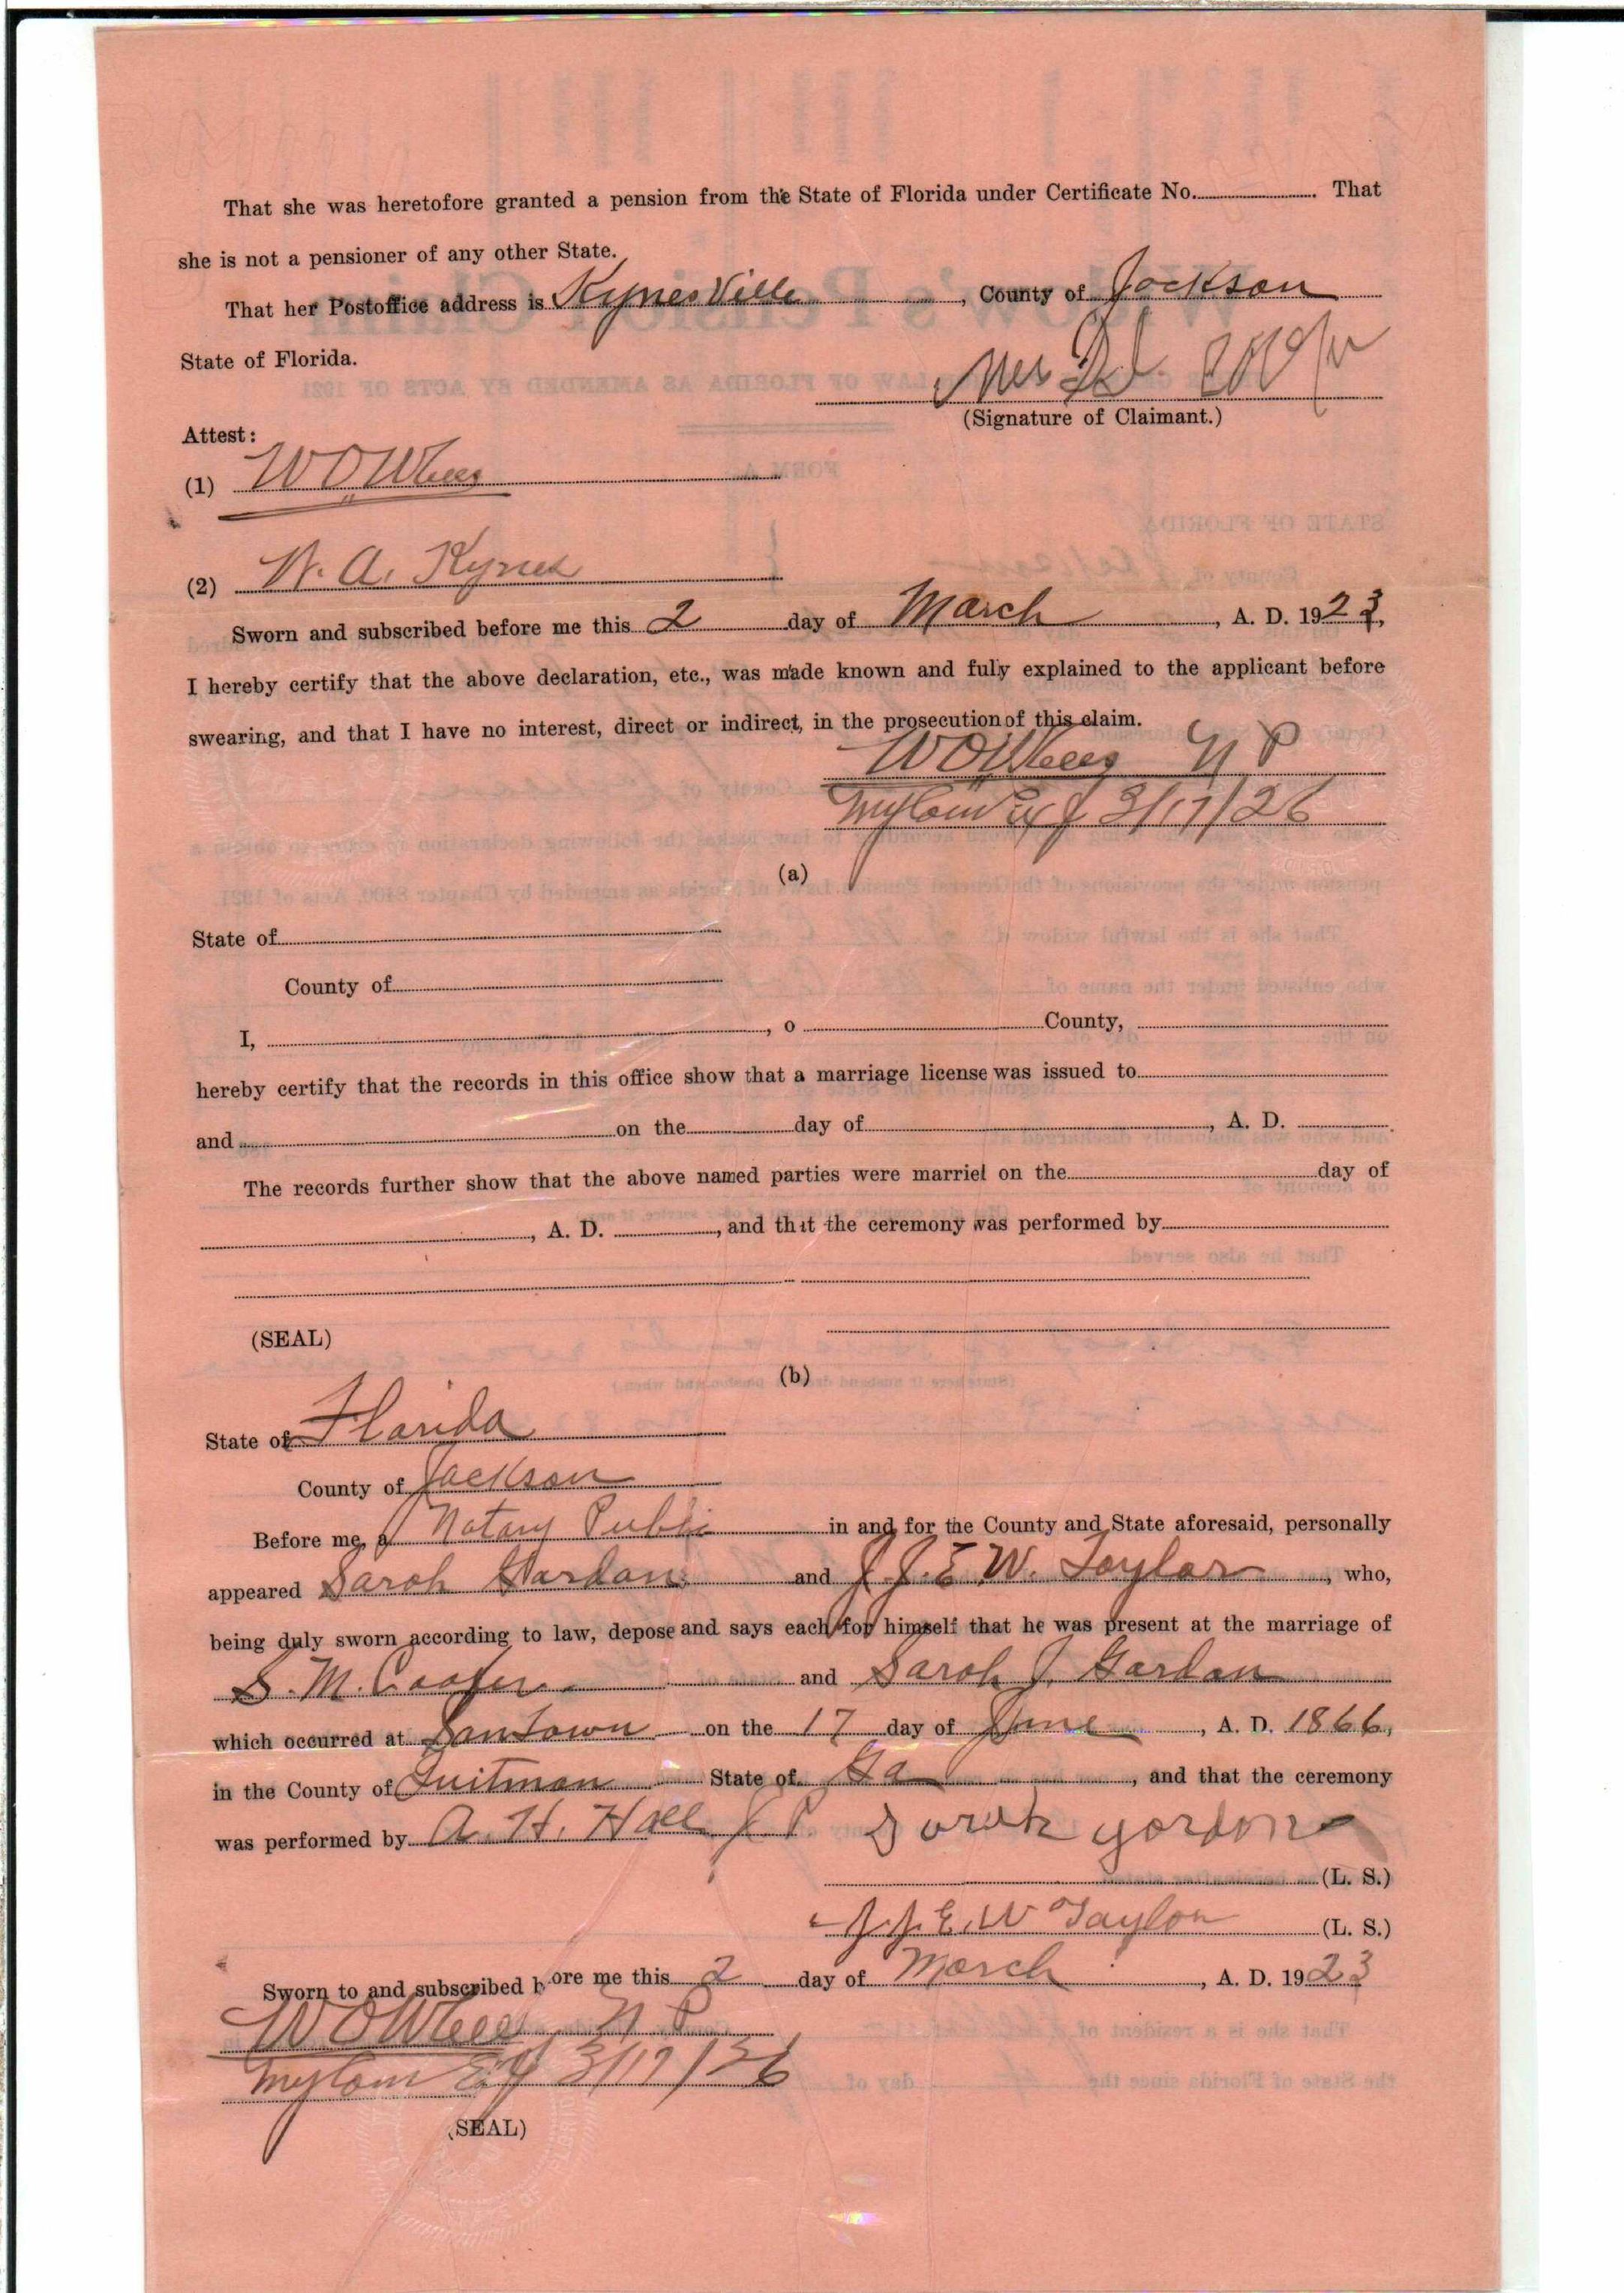 That she was heretofore granted a pension from the State of Florida under Certificate No. That
she is not a pensioner of any other State.
That her Postoffice address is Kynesville, County of Jackson
State of Florida.
Mrs
(Signature of Claimant.)
Attest:
(1) W O
(2) A. Kynes
Sworn and subscribed before me this 2 day of March, A. D. 1923,
I hereby certify that the above declaration, etc., was made known and fully explained to the applicant before
swearing, and that I have no interest, direct or indirect, in the prosecution of this claim.
W O N P
My Com Ex 3/17/26
(a)
State of
County of
I, , o County,
hereby certify that the records in this office show that a marriage license was issued to
and on the day of , A. D.
The records further show that the above named parties were married on the day of
, A. D. , and that the ceremony was performed by
(SEAL)
(b)
State of Florida
County of Jackson
Before me, a Notary Public in and for the County and State aforesaid, personally
appeared Sarah Gordon and J. J. E. W. Taylor, who,
being duly sworn according to law, depose and says each for himself that he was present at the marriage of
S. M. Cooper and Sarah J. Gordon
which occurred at on the 17 day of June, A. D. 1866,
in the County of Quitman State of Ga, and that the ceremony
was performed by A. H. Hall J P Sarah gordon
(L. S.)
J. J. E. W Taylor (L. S.)
Sworn to and subscribed before me this 2 day of March, A. D. 1923
W O N P
My Com Ex 3/17/26
(SEAL)